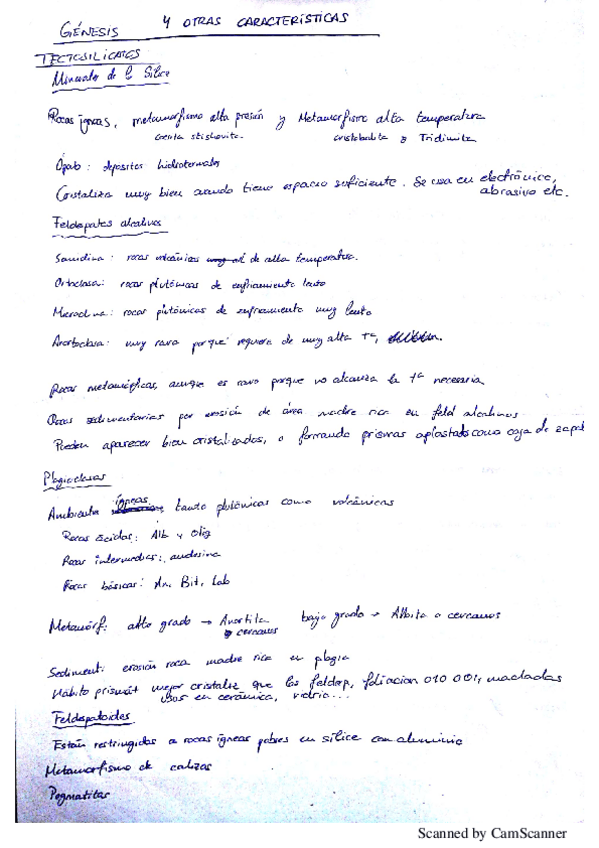 GÉNESIS Y OTRAS CARACTERÍSTICAS
TECTOSILICATOS
Minerales de la Sílice
Rocas ígneas, metamorfismo alta presión y Metamorfismo alta temperatura
coesita stishovita. cristobalita o Tridimita
Ópalo: depósitos hidrotermales
Cristaliza muy bien cuando tiene espacio suficiente. Se usa en electrónica,
abrasivo etc.
Feldespatos alcalinos
Sanidina: rocas volcánicas de alta temperatura.
Ortoclasa: rocas plutónicas de enfriamiento lento
Microclina: rocas plutónicas de enfriamiento muy lento
Anortoclasa: muy rara porque requiere de muy alta Tª,
Rocas metamórficas, aunque es raro porque no alcanza la Tª necesaria
Rocas sedimentarias por erosión de área madre rica en feld alcalinos
Pueden aparecer bien cristalizados, o formando prismas aplastados como caja de zapat
Plagioclasas
Ambiente ígneas, tanto plutónicas como volcánicas
Rocas ácidas: Alb y Olig
Rocas intermedias: andesina
Rocas básicas: An, Bit, Lab
Metamórf: alto grado → Anortita bajo grado → Albita o cercanos
o cercanos
Sediment: erosión roca madre rica en plagio
Hábito prismát mejor cristaliz que los feldep, foliacion 010 001, macladas
usos en cerámica, vidrio...
Feldespatoides
Están restringidos a rocas ígneas pobres en sílice con aluminio
Metamorfismo de calizas
Pegmatitas
Scanned by CamScanner